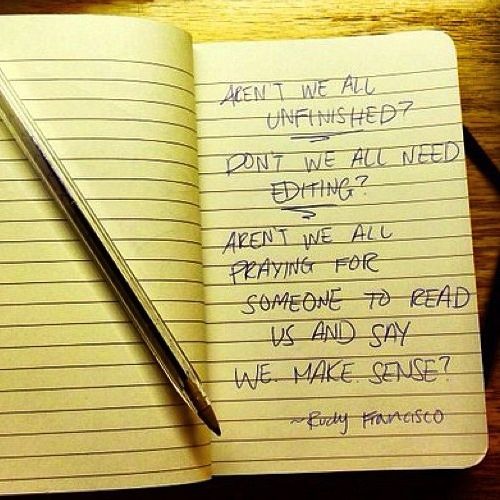 AREN'T WE ALL
UNFINISHED?
DON'T WE ALL NEED
EDITING?
AREN'T WE ALL
PRAYING FOR
SOMEONE TO READ
US AND SAY
WE MAKE SENSE?
~Rudy Francisco